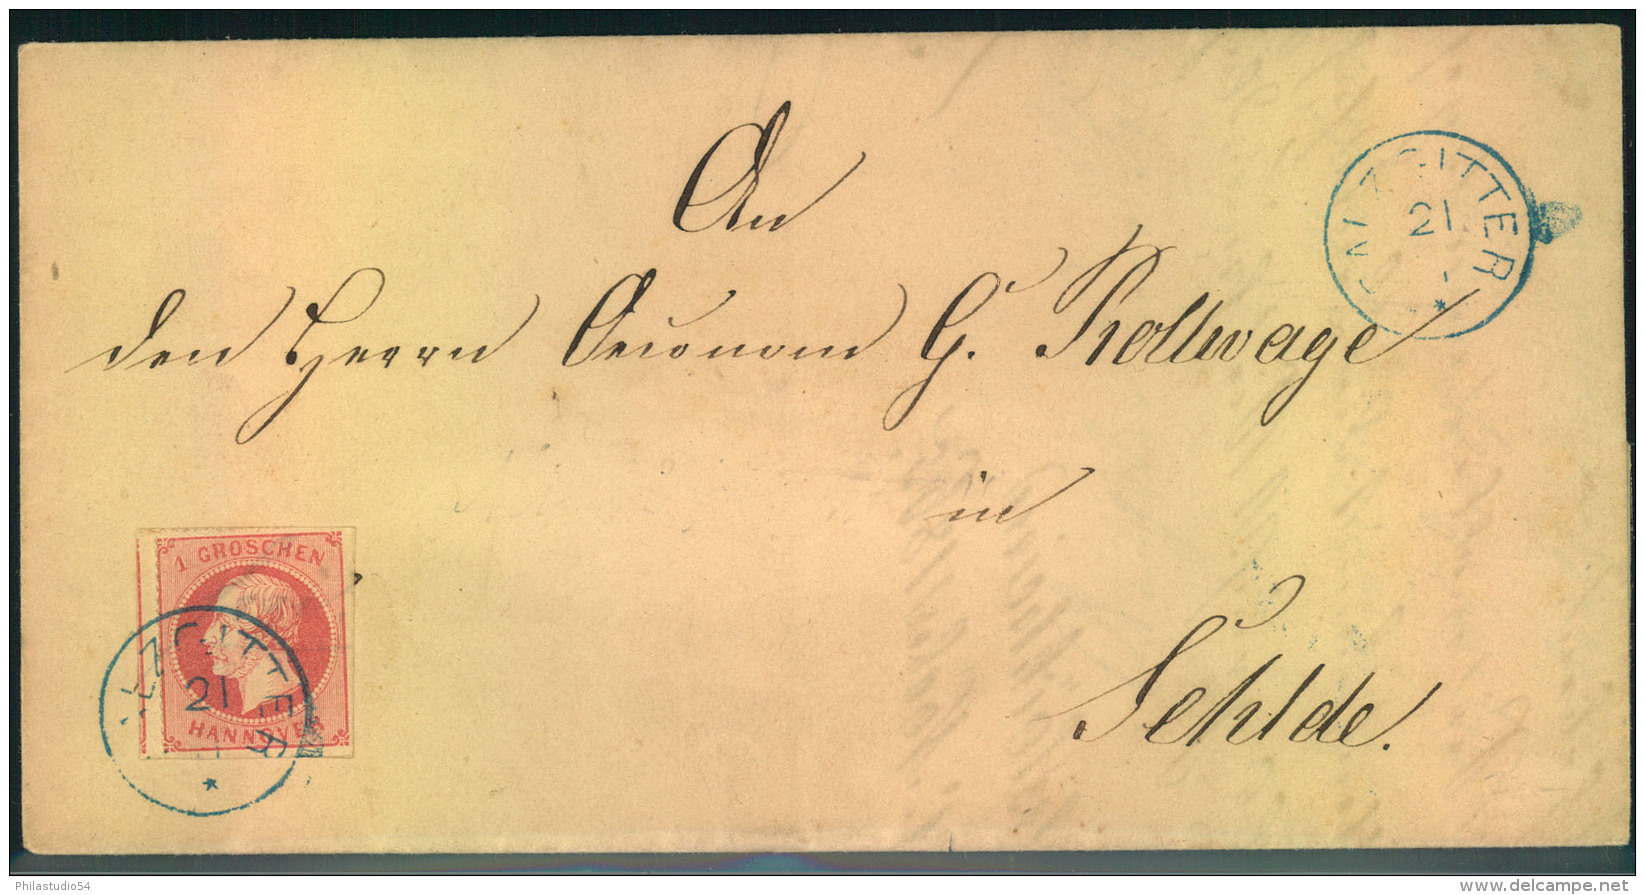 An
den Herrn Oeconom G. Rollwage
in
Sehlde.
SALZGITTER
21
*
1 GROSCHEN
HANNOVER
SALZGITTER
21
*
Philastudio54
delcampe.net